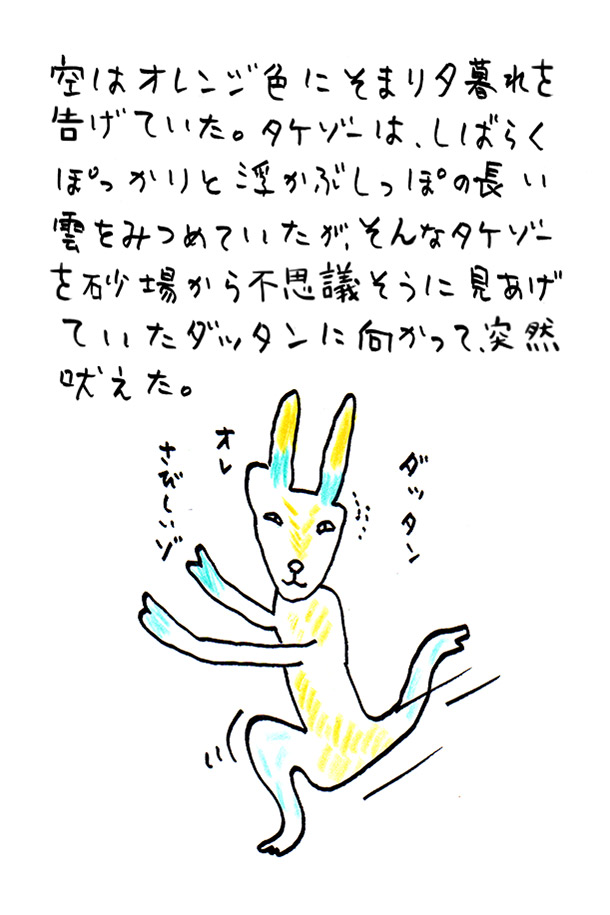 空はオレンジ色にそまり夕暮れを
告げていた。タケゾーは、しばらく
ぽっかりと浮かぶしっぽの長い
雲をみつめていたが、そんなタケゾー
を砂場から不思議そうに見あげ
ていたダッタンに向かって、突然
吠えた。
ダッタン
オレ
さびしいゾ